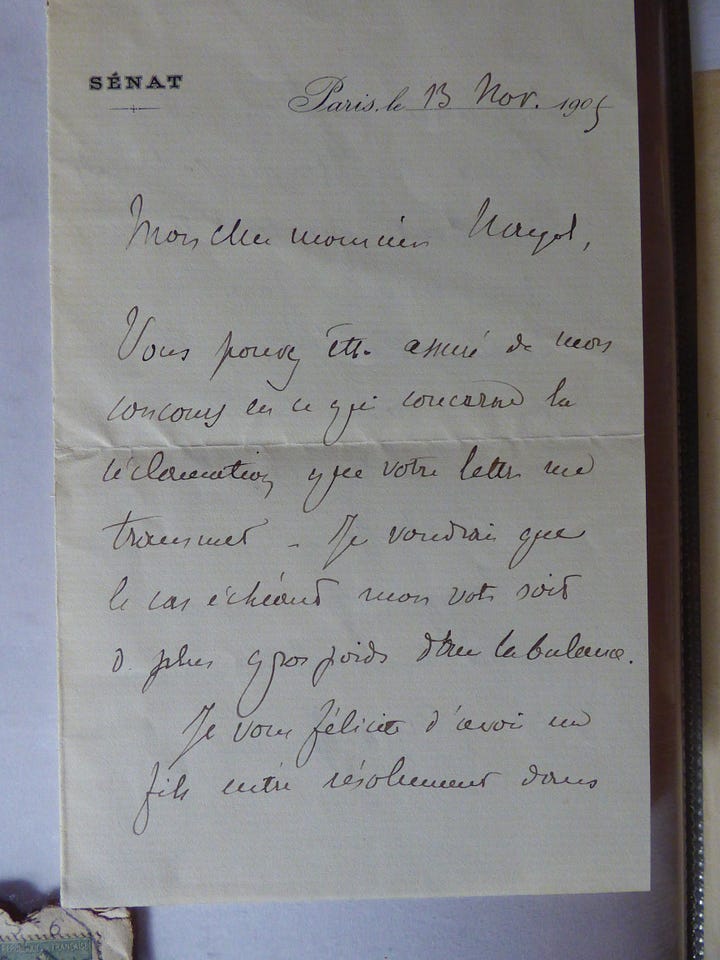 SÉNAT
Paris, le 13 Nov. 1905
Mon cher monsieur
Vous pouvez être assuré de mon
concours en ce qui concerne la
réclamation que votre lettre me
transmet - Je voudrais que
le cas échéant mon vote soit
d plus gros poids dans la balance.
Je vous félicite d'avoir un
fils entré résolument dans